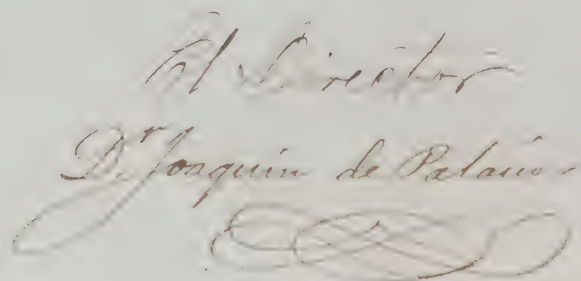 El Director
D.r Joaquin de Palacio